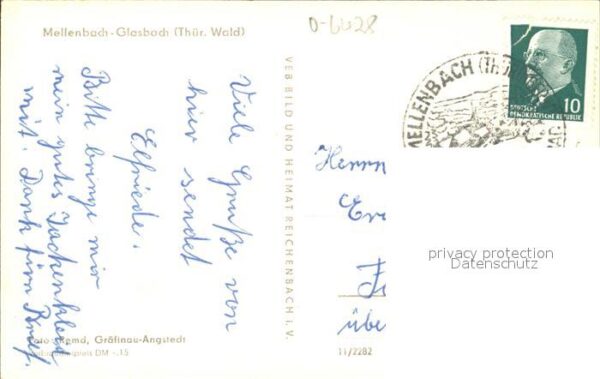 Mellenbach-Glasbach (Thür. Wald)
Viele Grüße von
hier sendet
Elfriede.
Bitte bringe mir
mein gutes Jackenkleid
mit. Dank fürn Brief.
Foto: Remd, Gräfinau-Angstedt
DM -.15
VEB BILD UND HEIMAT REICHENBACH I. V.
0-6428
MELLENBACH (TH
DEUTSCHE
DEMOKRATISCHE REPUBLIK
10
Herrn
privacy protection
Datenschutz
übe
11/2282